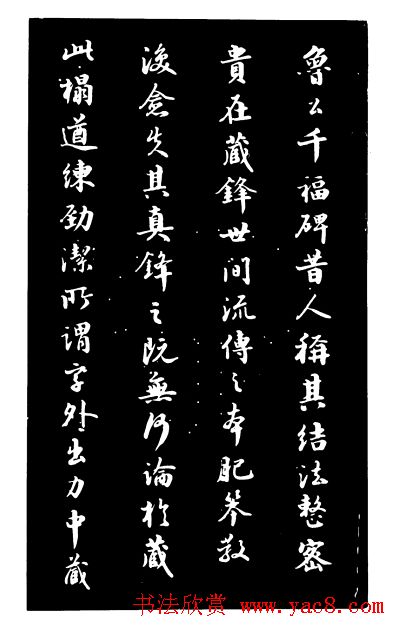 魯公千福碑昔人稱其結法整密
貴在藏鋒世間流傳之本肥笨散
漫愈失其真鋒之既無何論於藏
此搨遒練勁潔所謂字外出力中藏
书法欣赏 www.yac8.com